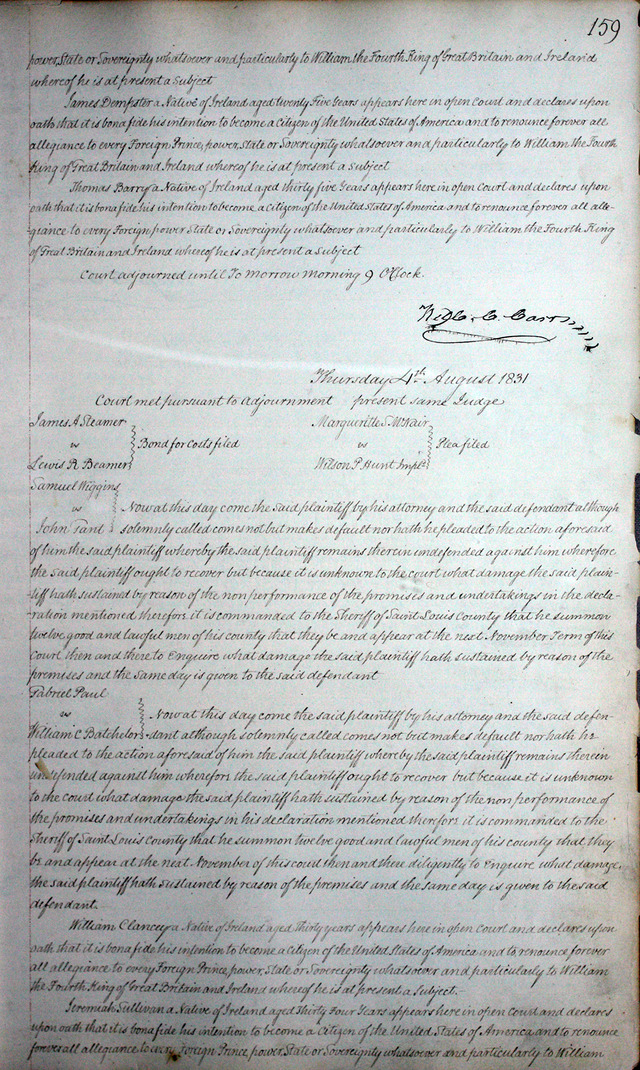 159
power, State or Sovereignty whatsoever and particularly to William the Fourth King of Great Britain and Ireland
whereof he is at present a Subject
James Dempster a Native of Ireland aged twenty Five Years appears here in open Court and declares upon
oath that it is bona fide his intention to become a Citizen of the United States of America and to renounce forever all
allegiance to every Foreign Prince, power, State or Sovereignty whatsoever and particularly to William the Fourth
King of Great Britain and Ireland whereof he is at present a Subject
Thomas Barry a Native of Ireland aged thirty five Years appears here in open Court and declares upon
oath that it is bona fide his intention to become a Citizen of the United States of America and to renounce forever all alle-
giance to every Foreign power State or Sovereignty whatsoever and particularly to William the Fourth King
of Great Britain and Ireland whereof he is at present a Subject
Court adjourned until To Morrow Morning 9 OClock.
C. Carr
Thursday 4th August 1831
Court met pursuant to Adjournment present same Judge
James A Steamer
vs
Lewis R Beamer
Bond for Costs filed
Marguerite S McNair
vs
Wilson P Hunt Impld
Plea filed
Samuel Wiggins
vs
John Tant
Now at this day come the said plaintiff by his attorney and the said defendant although
solemnly called comes not but makes default nor hath he pleaded to the action aforesaid
of him the said plaintiff whereby the said plaintiff remains therein undefended against him wherefore
the said plaintiff ought to recover but because it is unknown to the court what damage the said plain-
tiff hath sustained by reason of the non performance of the promises and undertakings in the decla-
ration mentioned therefore it is commanded to the Sheriff of Saint Louis County that he summon
twelve good and lawful men of his county that they be and appear at the next November Term of this
Court then and there to Enquire what damage the said plaintiff hath sustained by reason of the
premises and the same day is given to the said defendant
Gabriel Paul
vs
William C Batchelor
Now at this day come the said plaintiff by his attorney and the said defen-
dant although solemnly called comes not but makes default nor hath he
pleaded to the action aforesaid of him the said plaintiff whereby the said plaintiff remains therein
undefended against him wherefore the said plaintiff ought to recover but because it is unknown
to the court what damage the said plaintiff hath sustained by reason of the non performance of
the promises and undertakings in his declaration mentioned therefore it is commanded to the
Sheriff of Saint Louis County that he summon twelve good and lawful men of his county that they
be and appear at the next November of this court then and there diligently to Enquire what damage
the said plaintiff hath sustained by reason of the premises and the same day is given to the said
defendant.
William Clancey a Native of Ireland aged Thirty years appears here in open Court and declares upon
oath that it is bona fide his intention to become a Citizen of the United States of America and to renounce forever
all allegiance to every Foreign Prince power, State or Sovereignty whatsoever and particularly to William
the Fourth King of Great Britain and Ireland whereof he is at present a Subject.-
Jeremiah Sullivan a Native of Ireland aged Thirty Four Years appears here in open Court and declares
upon oath that it is bona fide his intention to become a Citizen of the United States of America and to renounce
forever all allegiance to every Foreign Prince power State or Sovereignty whatsoever and particularly to William